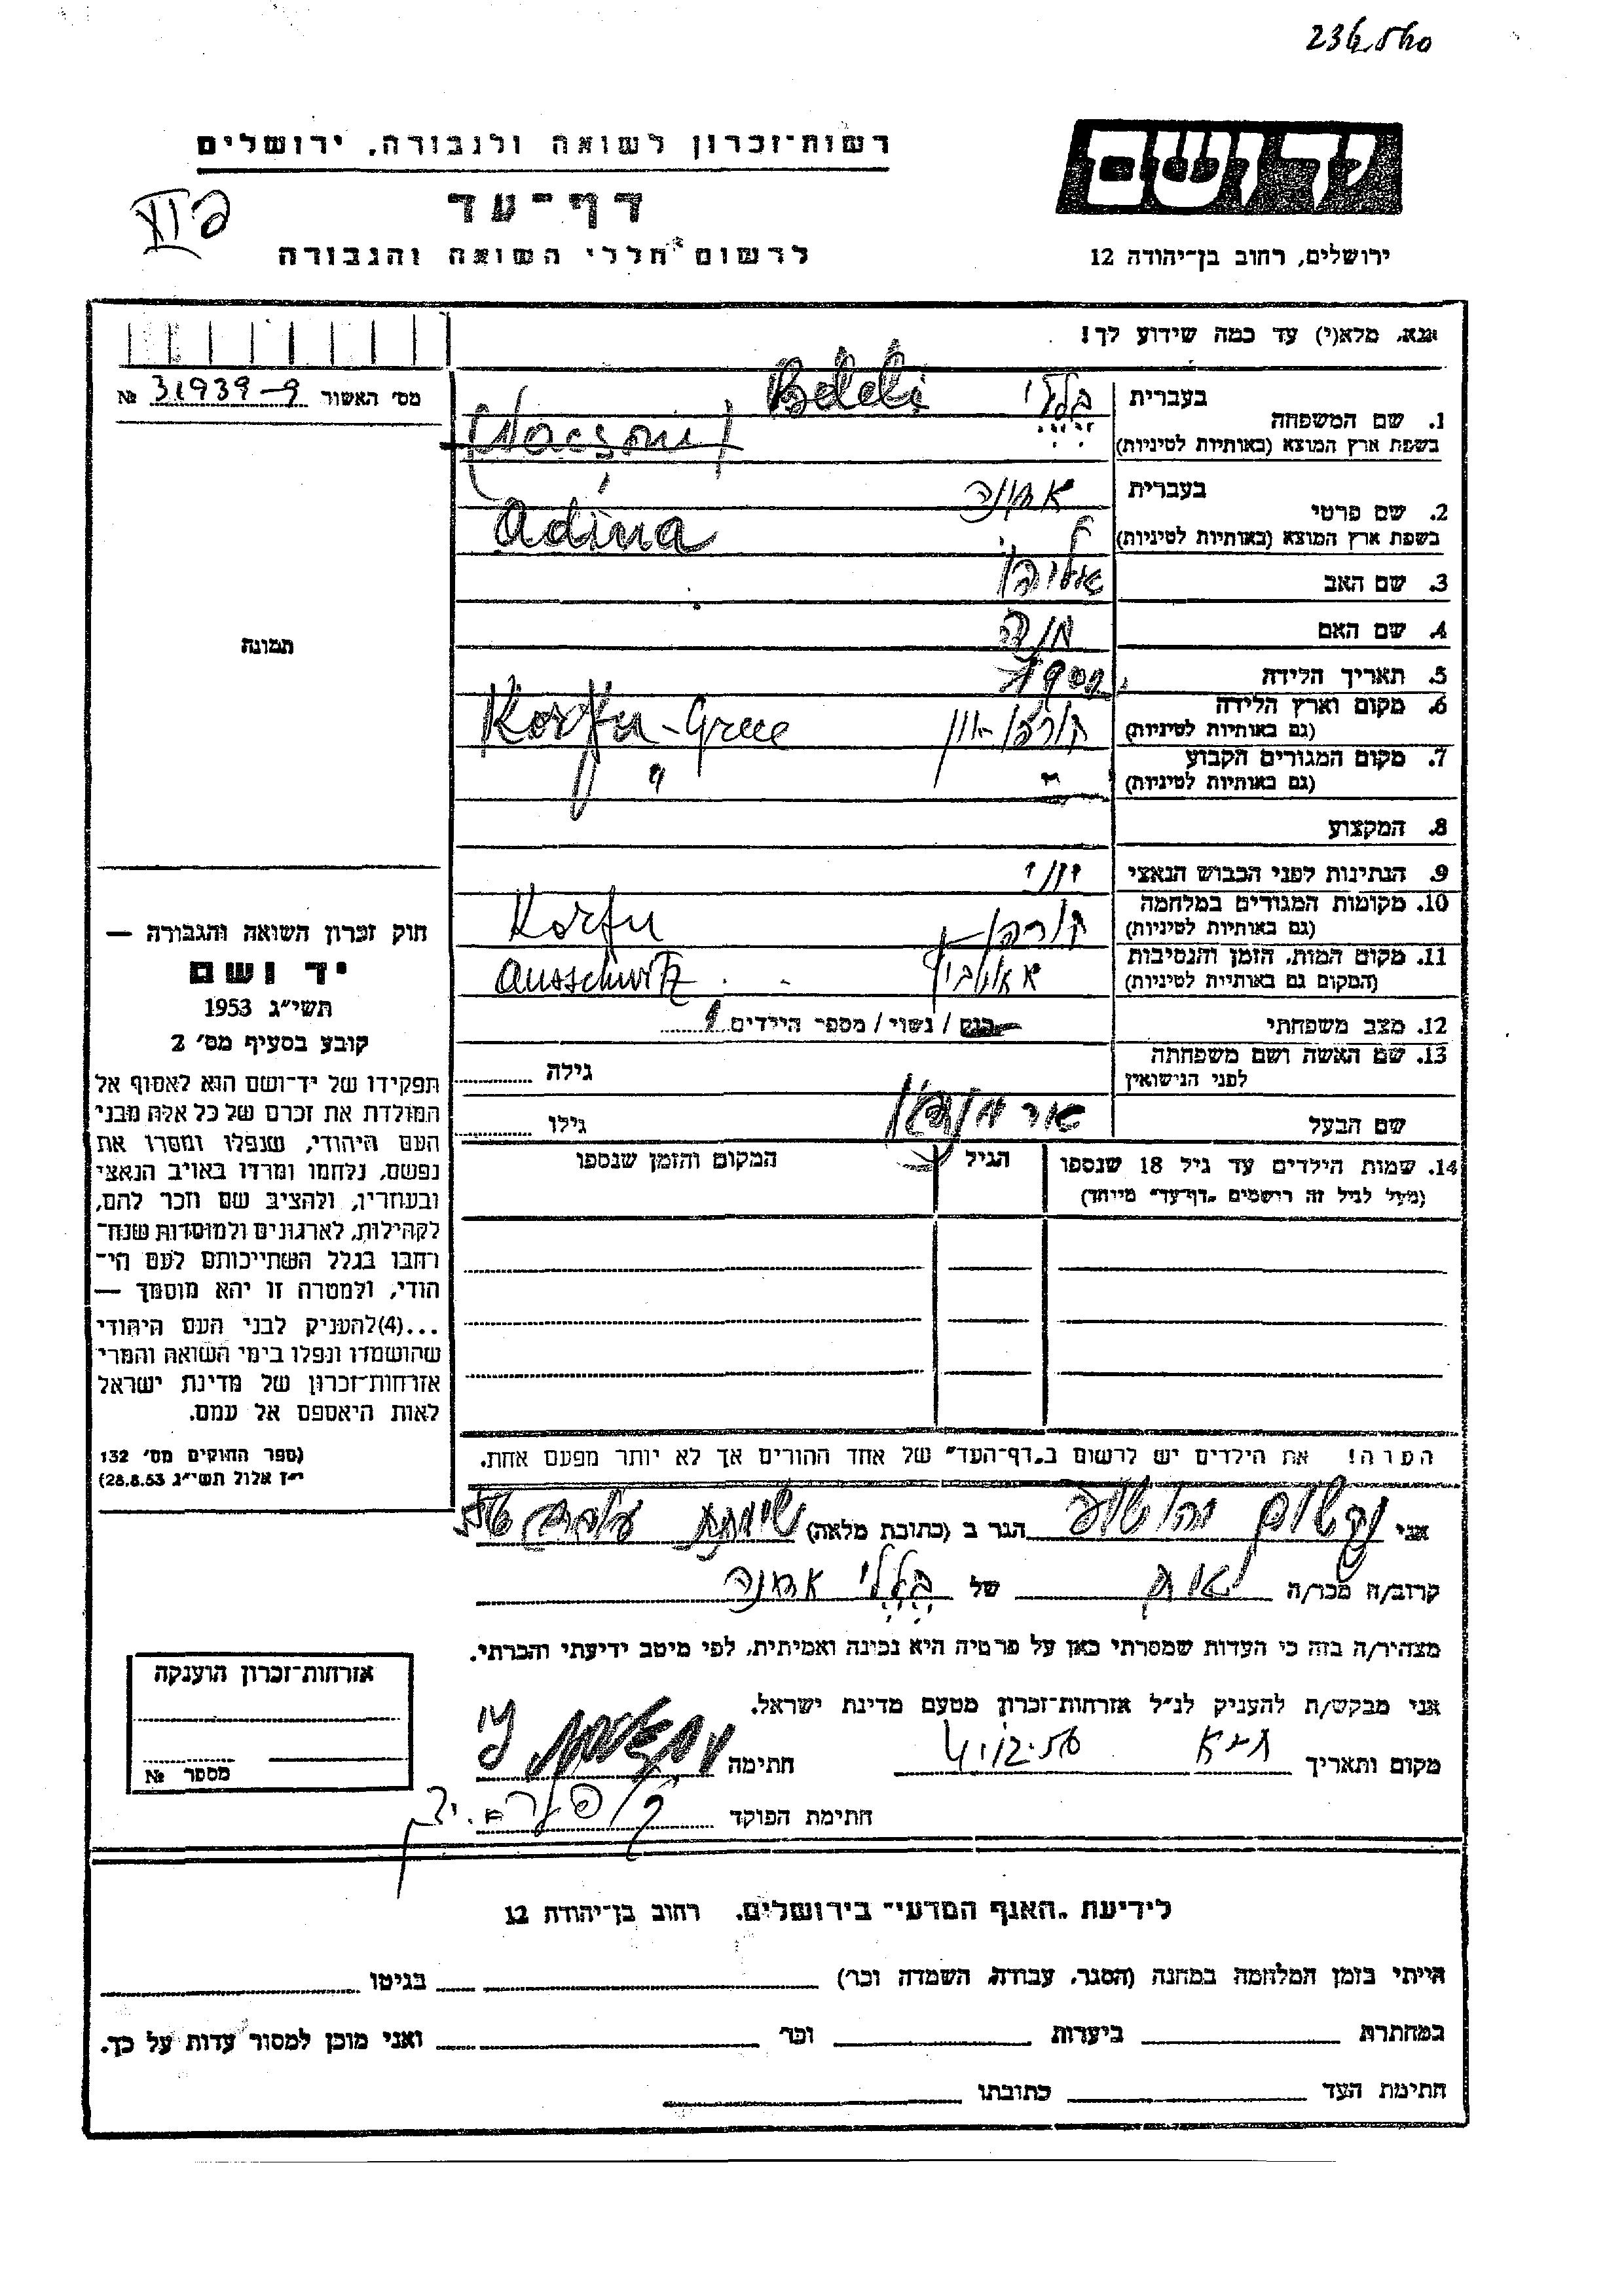 רשות־זכרון לשואה ולגבורה, ירושלים
דף־עד
לרשום חללי השואה והגבורה
יד ושם
ירושלים, רחוב בן־יהודה 12
אנא, מלא(י) עד כמה שידוע לך!
מס׳ האשור 31939-9 №
1. שם המשפחה בעברית בללי Beleli
בשפת ארץ המוצא (באותיות לטיניות)
2. שם פרטי בעברית
בשפת ארץ המוצא (באותיות לטיניות) Adina
3. שם האב
4. שם האם חנה
5. תאריך הלידה
6. מקום וארץ הלידה
(גם באותיות לטיניות) קורפו־יון Korfu - Greece
7. מקום המגורים הקבוע
(גם באותיות לטיניות) " "
8. המקצוע
9. הנתינות לפני הכבוש הנאצי
10. מקומות המגורים במלחמה
(גם באותיות לטיניות) קורפו Korfu
11. מקום המות, הזמן והנסיבות
(המקום גם באותיות לטיניות) Ausschwitz
12. מצב משפחתי רווק / נשוי / מספר הילדים
13. שם האשה ושם משפחתה
לפני הנישואין
גילה
שם הבעל
גילו
14. שמות הילדים עד גיל 18 שנספו
(מעל לגיל זה רישמים "דף־עד" מייוחד)
הגיל
המקום והזמן שנספו
תמונה
חוק זכרון השואה והגבורה —
יד ושם
תשי״ג 1953
קובע בסעיף מס׳ 2
תפקידו של יד־ושם הוא לאסוף אל
המולדת את זכרם של כל אלה מבני
העם היהודי, שנפלו ומסרו את
נפשם, נלחמו ומרדו באויב הנאצי
ובעוזריו, ולהציב שם וזכר להם,
לקהילות, לארגונים ולמוסדות שנח־
רבו בגלל השתייכותם לעם הי־
הודי, ולמטרה זו יהא מוסמך —
...(4)להעניק לבני העם היהודי
שהושמדו ונפלו בימי השואה והמרי
אזרחות־זכרון של מדינת ישראל
לאות היאספם אל עמם.
(ספר החוקים מס׳ 132
י״ז אלול תשי״ג 28.8.53)
הערה! את הילדים יש לרשום ב"דף־העד" של אחד ההורים אך לא יותר מפעם אחת.
אני
הגר ב (כתובת מלאה)
קרוב/ה מכר/ה
של בללי
מצהיר/ה בזה כי העדות שמסרתי כאן על פרטיה היא נכונה ואמיתית, לפי מיטב ידיעתי והכרתי.
אני מבקש/ת להעניק לנ״ל אזרחות־זכרון מטעם מדינת ישראל.
מקום ותאריך ת״א
חתימה
חתימת הפוקד
אזרחות־זכרון הוענקה
מספר №
לידיעת "האגף המדעי" בירושלים, רחוב בן־יהודה 12
הייתי בזמן המלחמה במחנה (הסגר, עבודה, השמדה וכו׳)
בגיטו
במחתרת
ביערות
וכו׳
ואני מוכן למסור עדות על כך.
חתימת העד
כתובתו